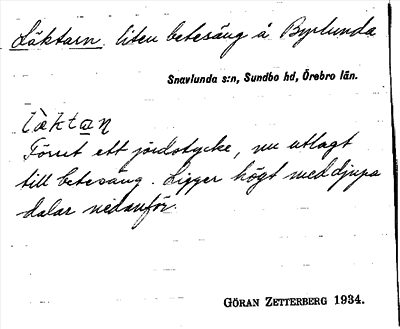 Läktarn. liten betesäng å Byrlunda
Snavlunda s:n, Sundbo hd, Örebro län.
lὰktan
Förut ett jordstycke, nu utlagt
till betesäng. Ligger högt med djupa
dalar nedanför.
GÖRAN ZETTERBERG 1934.